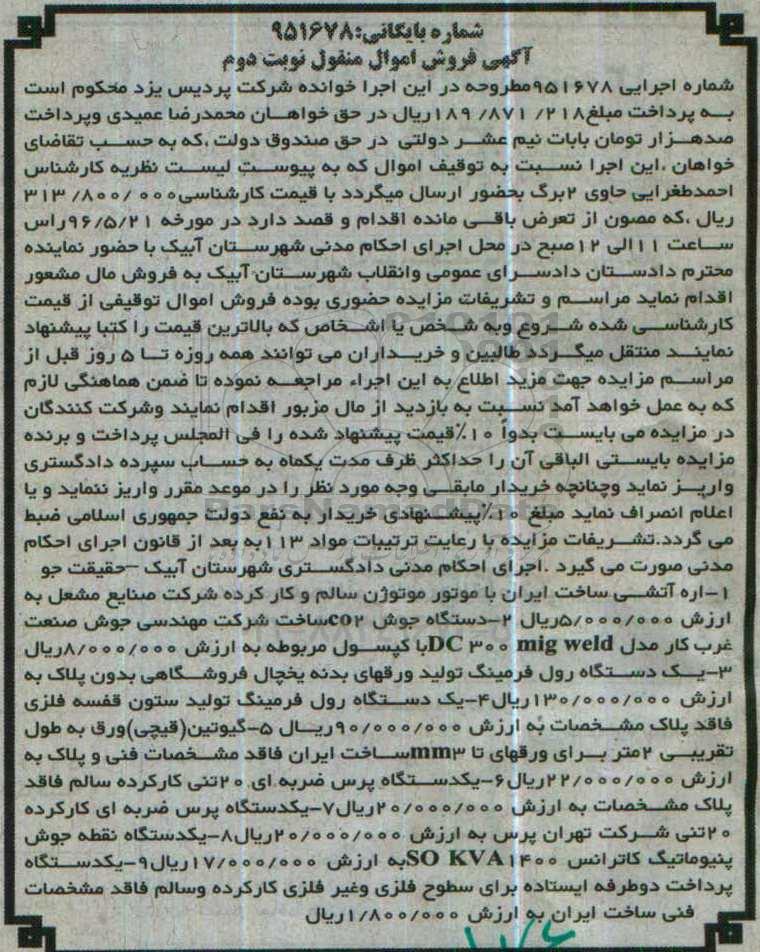 شماره بایگانی:۹۵۱۶۷۸
آگهی فروش اموال منقول نوبت دوم
شماره اجرایی ۹۵۱۶۷۸مطروحه در این اجرا خوانده شرکت پردیس یزد محکوم است
به پرداخت مبلغ۲۱۸/ ۸۷۱/ ۱۸۹ریال در حق خواهان محمدرضا عمیدی وپرداخت
صدهزار تومان بابات نیم عشر دولتی در حق صندوق دولت ،که به حسب تقاضای
خواهان ،این اجرا نسبت به توقیف اموال که به پیوست لیست نظریه کارشناس
احمدطغرایی حاوی ۲برگ بحضور ارسال میگردد با قیمت کارشناسی۰۰۰ /۸۰۰/ ۳۱۳
ریال ،که مصون از تعرض باقی مانده اقدام و قصد دارد در مورخه ۹۶/۵/۲۱راس
ساعت ۱۱الی ۱۲صبح در محل اجرای احکام مدنی شهرستان آبیک با حضور نماینده
محترم دادستان دادسرای عمومی وانقلاب شهرستان آبیک به فروش مال مشعور
اقدام نماید مراسم و تشریفات مزایده حضوری بوده فروش اموال توقیفی از قیمت
کارشناسی شده شروع وبه شخص یا اشخاص که بالاترین قیمت را کتبا پیشنهاد
نمایند منتقل میگردد طالبین و خریداران می توانند همه روزه تا ۵ روز قبل از
مراسم مزایده جهت مزید اطلاع به این اجراء مراجعه نموده تا ضمن هماهنگی لازم
که به عمل خواهد آمد نسبت به بازدید از مال مزبور اقدام نمایند وشرکت کنندگان
در مزایده می بایست بدواً ۱۰٪قیمت پیشنهاد شده را فی المجلس پرداخت و برنده
مزایده بایستی الباقی آن را حداکثر ظرف مدت یکماه به حساب سپرده دادگستری
واریز نماید وچنانچه خریدار مابقی وجه مورد نظر را در موعد مقرر واریز ننماید و یا
اعلام انصراف نماید مبلغ ۱۰٪پیشنهادی خریدار به نفع دولت جمهوری اسلامی ضبط
می گردد.تشریفات مزایده با رعایت ترتیبات مواد ۱۱۳به بعد از قانون اجرای احکام
مدنی صورت می گیرد .اجرای احکام مدنی دادگستری شهرستان آبیک –حقیقت جو
۱-اره آتشی ساخت ایران با موتور موتوژن سالم و کار کرده شرکت صنایع مشعل به
ارزش ۵/۰۰۰/۰۰۰ریال ۲-دستگاه جوش co۲ساخت شرکت مهندسی جوش صنعت
غرب کار مدل DC ۳۰۰ mig weldبا کپسول مربوطه به ارزش ۸/۰۰۰/۰۰۰ریال
۳-یک دستگاه رول فرمینگ تولید ورقهای بدنه یخچال فروشگاهی بدون پلاک به
ارزش ۱۳۰/۰۰۰/۰۰۰ریال۴-یک دستگاه رول فرمینگ تولید ستون قفسه فلزی
فاقد پلاک مشخصات به ارزش ۹۰/۰۰۰/۰۰۰ریال ۵-گیوتین(قیچی)ورق به طول
تقریبی ۲متر برای ورقهای تا mm۳ساخت ایران فاقد مشخصات فنی و پلاک به
ارزش ۲۲/۰۰۰/۰۰۰ریال۶-یکدستگاه پرس ضربه ای ۲۰تنی کارکرده سالم فاقد
پلاک مشخصات به ارزش ۲۰/۰۰۰/۰۰۰ریال۷-یکدستگاه پرس ضربه ای کارکرده
۲۰تنی شرکت تهران پرس به ارزش ۲۰/۰۰۰/۰۰۰ریال۸-یکدستگاه نقطه جوش
پنیوماتیگ کاترانس SO KVA۱۴۰۰به ارزش ۱۷/۰۰۰/۰۰۰ریال۹-یکدستگاه
پرداخت دوطرفه ایستاده برای سطوح فلزی وغیر فلزی کارکرده وسالم فاقد مشخصات
فنی ساخت ایران به ارزش ۱/۸۰۰/۰۰۰ریال